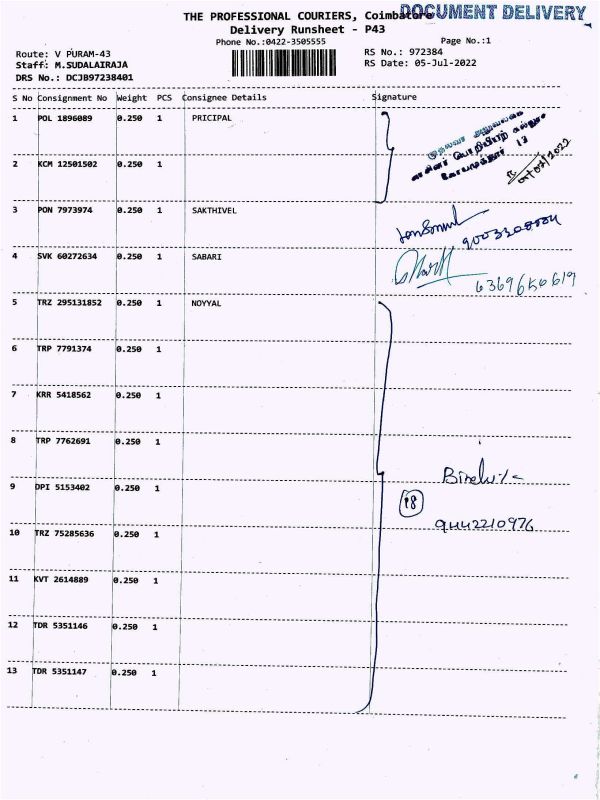 THE PROFESSIONAL COURIERS, Coimbatore
DOCUMENT DELIVERY
Delivery Runsheet - P43
Phone No.:0422-3505555
Page No.:1
Route: V PURAM-43
RS No.: 972384
Staff: M.SUDALAIRAJA
RS Date: 05-Jul-2022
DRS No.: DCJB97238401
S No Consignment No Weight PCS Consignee Details Signature
1 POL 1896089 0.250 1 PRICIPAL
2 KCM 12501502 0.250 1
3 PON 7973974 0.250 1 SAKTHIVEL
4 SVK 60272634 0.250 1 SABARI
6369650619
5 TRZ 295131852 0.250 1 NOYYAL
6 TRP 7791374 0.250 1
7 KRR 5418562 0.250 1
8 TRP 7762691 0.250 1
9 DPI 5153402 0.250 1
18
9442210976
10 TRZ 75285636 0.250 1
11 KVT 2614889 0.250 1
12 TDR 5351146 0.250 1
13 TDR 5351147 0.250 1